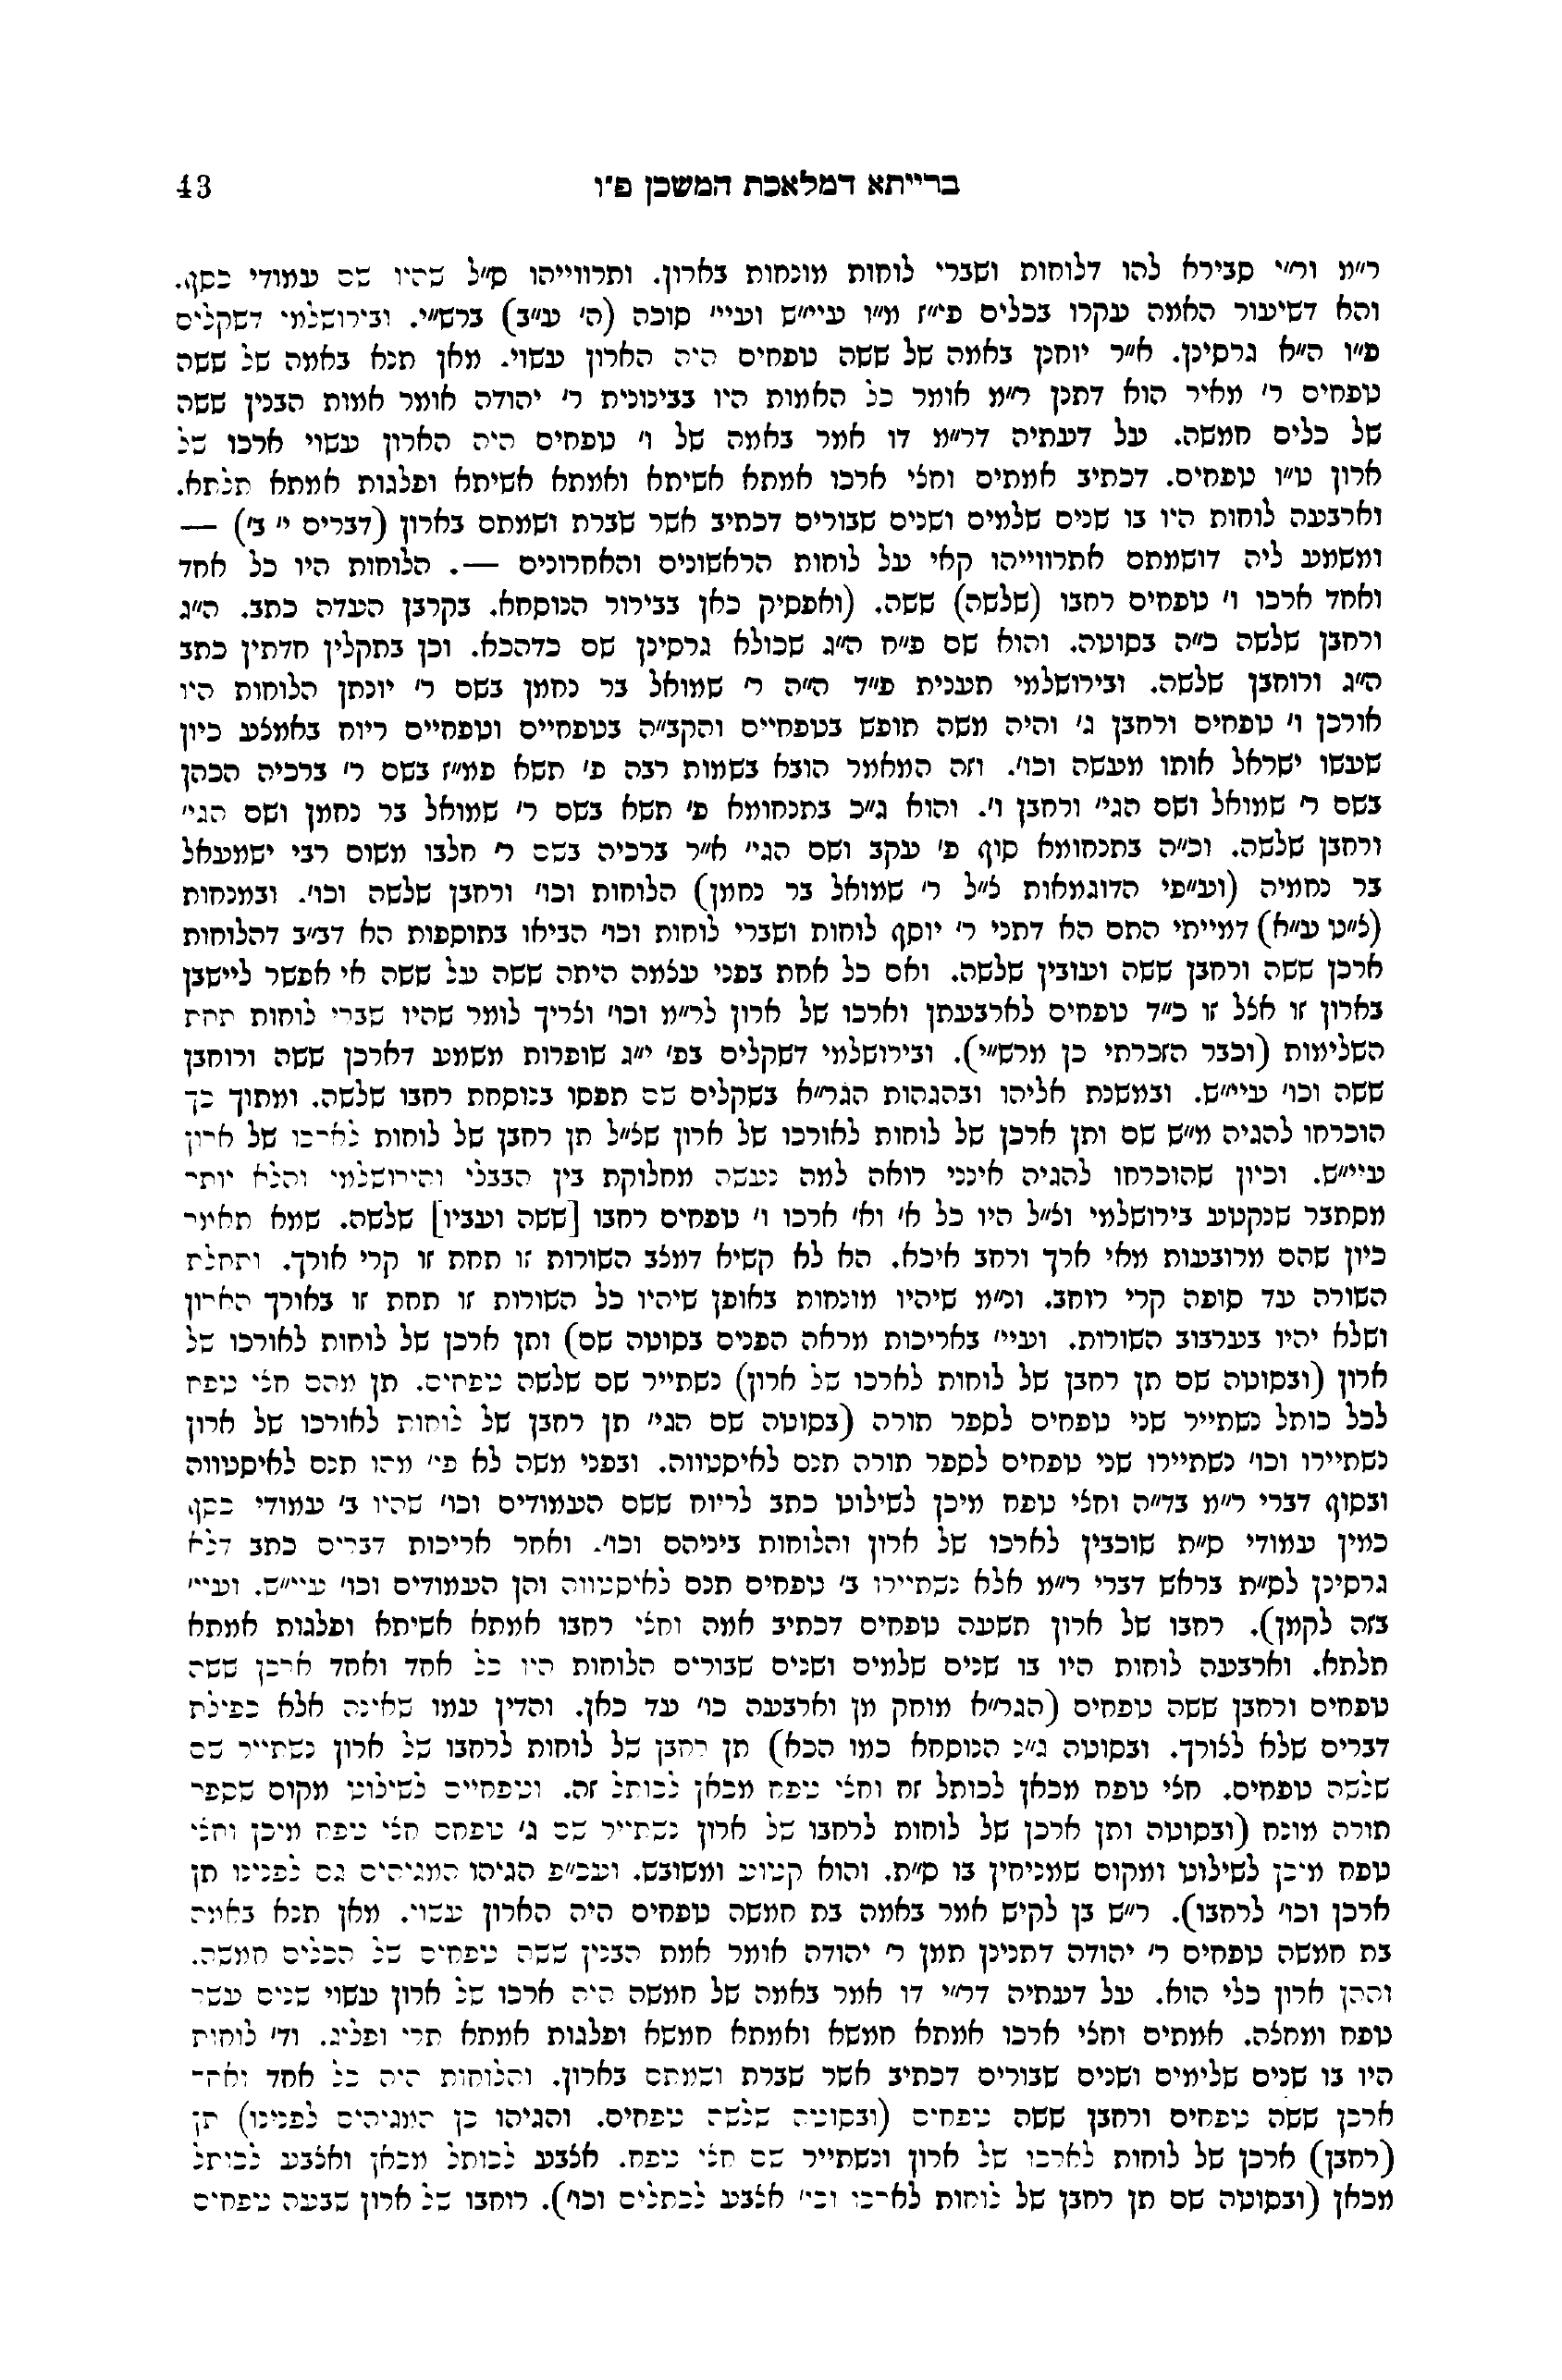 ברייתא דמלאכת המשכן פ"ו 43
ר"מ ור"י סבירא להו דלוחות ושברי לוחות מונחות בארון. ותרווייהו ס"ל שהיו שם עמודי כסף.
והא דשיעור האמה עקרו בכלים פי"ז מ"ו עיי"ש ועיי' סוכה (ה' ע"ב) ברש"י. ובירושלמי דשקלים
פ"ו ה"א גרסינן. א"ר יוחנן באמה של ששה טפחים היה הארון עשוי. מאן תנא באמה של ששה
טפחים ר' מאיר הוא דתנן ר"מ אומר כל האמות היו בבינונית ר' יהודה אומר אמות הבנין ששה
של כלים חמשה. על דעתיה דר"מ דו אמר באמה של ו' טפחים היה הארון עשוי ארכו של
ארון ט"ו טפחים. דכתיב אמתים וחצי ארכו אמתא אשיתא ואמתא אשיתא ופלגות אמתא תלתא.
וארבעה לוחות היו בו שנים שלמים ושנים שבורים דכתיב אשר שברת ושמתם בארון (דברים י' ב') —
ומשמע ליה דושמתם אתרווייהו קאי על לוחות הראשונים והאחרונים —. הלוחות היו כל אחד
ואחד ארכו ו' טפחים רחבו (שלשה) ששה. (ואפסיק כאן בבירור הנוסחא. בקרבן העדה כתב. ה"ג
ורחבן שלשה כ"ה בסוטה. והוא שם פ"ח ה"ג שכולא גרסינן שם כדהכא. וכן בתקלין חדתין כתב
ה"ג ורוחבן שלשה. ובירושלמי תענית פ"ד ה"ה ר' שמואל בר נחמן בשם ר' יונתן הלוחות היו
אורכן ו' טפחים ורחבן ג' והיה משה תופש בטפחיים והקב"ה בטפחיים וטפחיים ריוח באמצע כיון
שעשו ישראל אותו מעשה וכו'. וזה המאמר הובא בשמות רבה פ' תשא פמ"ז בשם ר' ברכיה הכהן
בשם ר' שמואל ושם הגי' ורחבן ו'. והוא ג"כ בתנחומא פ' תשא בשם ר' שמואל בר נחמן ושם הגי'
ורחבן שלשה. וכ"ה בתנחומא סוף פ' עקב ושם הגי' א"ר ברכיה בשם ר' חלבו משום רבי ישמעאל
בר נחמיה (וע"פ הדוגמאות צ"ל ר' שמואל בר נחמן) הלוחות וכו' ורחבן שלשה וכו'. ובמנחות
(צ"ט ע"א) דמייתי התם הא דתני ר' יוסף לוחות ושברי לוחות וכו' הביאו בתוספות הא דב"ב דהלוחות
ארכן ששה ורחבן ששה ועובין שלשה. ואם כל אחת בפני עצמה היתה ששה על ששה אי אפשר ליישבן
בארון זו אצל זו כ"ד טפחים לארבעתן וארכו של ארון לר"מ וכו' וצריך לומר שהיו שברי לוחות תחת
השלימות (וכבר הזכרתי כן מרש"י). ובירושלמי דשקלים בפ' י"ג שופרות משמע דארכן ששה ורוחבן
ששה וכו' עיי"ש. ובמשנת אליהו ובהגהות הגר"א בשקלים שם תפסו בנוסחת רחבו שלשה. ומתוך כך
הוכרחו להגיה מ"ש שם ותן ארכן של לוחות לאורכו של ארון שצ"ל תן רחבן של לוחות לארכו של ארון
עיי"ש. וכיון שהוכרחו להגיה אינני רואה למה נעשה מחלוקת בין הבבלי והירושלמי והלא יותר
מסתבר שנקטע בירושלמי וצ"ל היו כל א' וא' ארכו ו' טפחים רחבו [ששה ועביו] שלשה. שמא תאמר
כיון שהם מרובעות מאי ארך ורחב איכא. הא לא קשיא דמצב השורות זו תחת זו קרי אורך. ותחלת
השורה עד סופה קרי רוחב. וכ"מ שיהיו מונחות באופן שיהיו כל השורות זו תחת זו באורך הארון
ושלא יהיו בערבוב השורות. ועיי' באריכות מראה הפנים בסוטה שם) ותן ארכן של לוחות לאורכו של
ארון (ובסוטה שם תן רחבן של לוחות לארכו של ארון) נשתייר שם שלשה טפחים. תן מהם חצי טפח
לכל כותל נשתייר שני טפחים לספר תורה (בסוטה שם הגי' תן רחבן של לוחות לאורכו של ארון
נשתיירו וכו' נשתיירו שני טפחים לספר תורה תנם לאיסטווה. ובפני משה לא פי' מהו תנם לאיסטווה
ובסוף דברי ר"מ בד"ה וחצי טפח מיכן לשילוט כתב לריוח ששם העמודים וכו' שהיו ב' עמודי כסף
כמין עמודי ס"ת שוכבין לארכו של ארון והלוחות ביניהם וכו'. ואחר אריכות דברים כתב דלא
גרסינן לס"ת בראש דברי ר"מ אלא נשתיירו ב' טפחים תנם לאיסטווה והן העמודים וכו' עיי"ש. ועיי'
בזה לקמן). רחבו של ארון תשעה טפחים דכתיב אמה וחצי רחבו אמתא אשיתא ופלגות אמתא
תלתא. וארבעה לוחות היו בו שנים שלמים ושנים שבורים הלוחות היו כל אחד ואחד ארכן ששה
טפחים ורחבן ששה טפחים (הגר"א מוחק מן וארבעה כו' עד כאן. והדין עמו שאינה אלא כפילת
דברים שלא לצורך. ובסוטה ג"כ הנוסחא כמו הכא) תן רחבן של לוחות לרחבו של ארון נשתייר שם
שלשה טפחים. חצי טפח מכאן לכותל זה וחצי טפח מכאן לכותל זה. וטפחיים לשילוט מקום שספר
תורה מונח (ובסוטה ותן ארכן של לוחות לרחבו של ארון נשתייר שם ג' טפחם חצי טפח מיכן וחצי
טפח מיכן לשילוט ומקום שמניחין בו ס"ת. והוא קטוע ומשובש. ועכ"פ הגיהו המגיהים גם לפנינו תן
ארכן וכו' לרחבו). ר"ש בן לקיש אמר באמה בת חמשה טפחים היה הארון עשוי. מאן תנא באמה
בת חמשה טפחים ר' יהודה דתנינן תמן ר' יהודה אומר אמת הבנין ששה טפחים של הכלים חמשה.
וההן ארון כלי הוא. על דעתיה דר"י דו אמר באמה של חמשה היה ארכו של ארון עשוי שנים עשר
טפח ומחצה. אמתים וחצי ארכו אמתא חמשא ואמתא חמשא ופלגות אמתא תרי ופליג. וד' לוחות
היו בו שנים שלימים ושנים שבורים דכתיב אשר שברת ושמתם בארון. והלוחות היה כל אחד ואחד
ארכן ששה טפחים ורחבן ששה טפחים (ובסוטה שלשה טפחים. והגיהו כן המגיהים לפנינו) תן
(רחבן) ארכן של לוחות לארכו של ארון ונשתייר שם חצי טפח. אצבע לכותל מכאן ואצבע לכותל
מכאן (ובסוטה שם תן רחבן של לוחות לארכו וכו' אצבע לכתלים וכו'). רוחבו של ארון שבעה טפחים